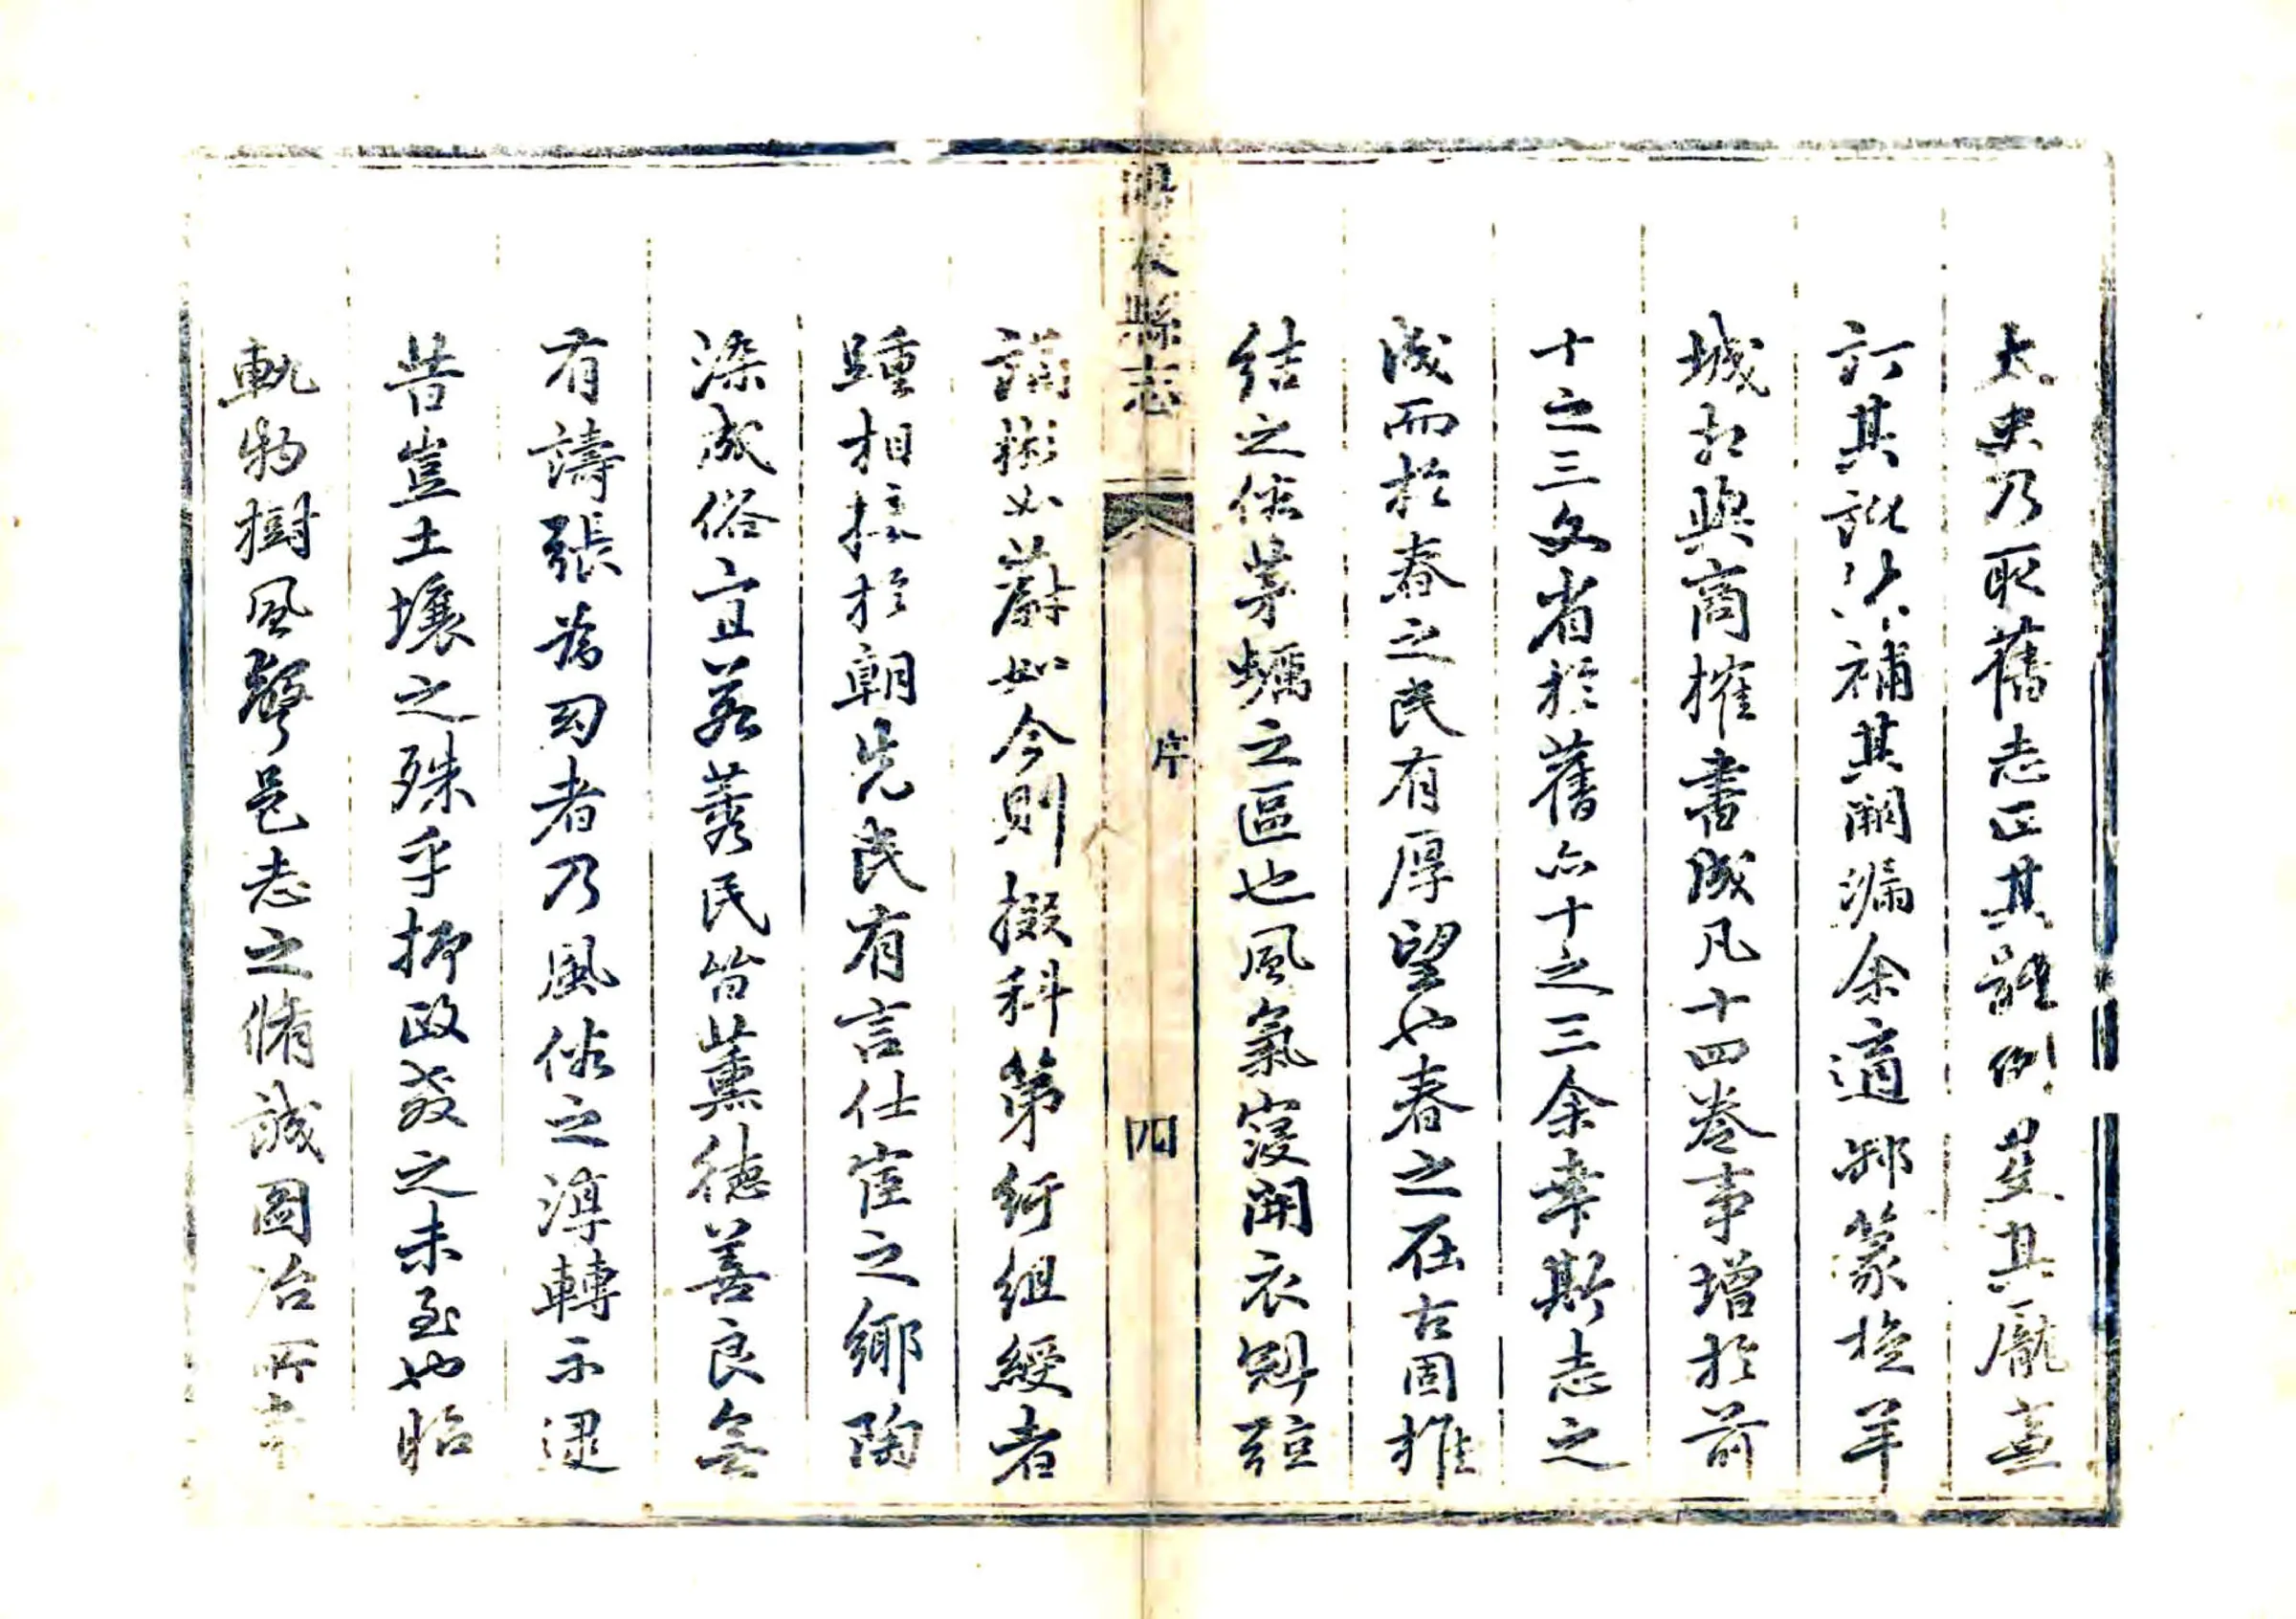 太史乃取舊志正其體例芟其龐蓋
訂其訛以補其闕漏余適郵篆於羊
城相與商搉書成凡十四卷事增於前
十之三文省於舊亦十之三余幸斯志之
成而於春之民有厚望也春之在古固推
結之俗茅蠣之區也風氣寖開衣冠絃
海春縣志
序
四
誦彬如蔚如今則掇科第紆組綬者
踵相接於朝先民有言仕宦之鄉陶
染成俗宜若莠民皆薰德善良無
有譸張為幻者乃風俗之漓轉不逮
昔豈土壤之殊乎抑政教之未至也昭
軌物樹風聲邑志之脩誠圖治所